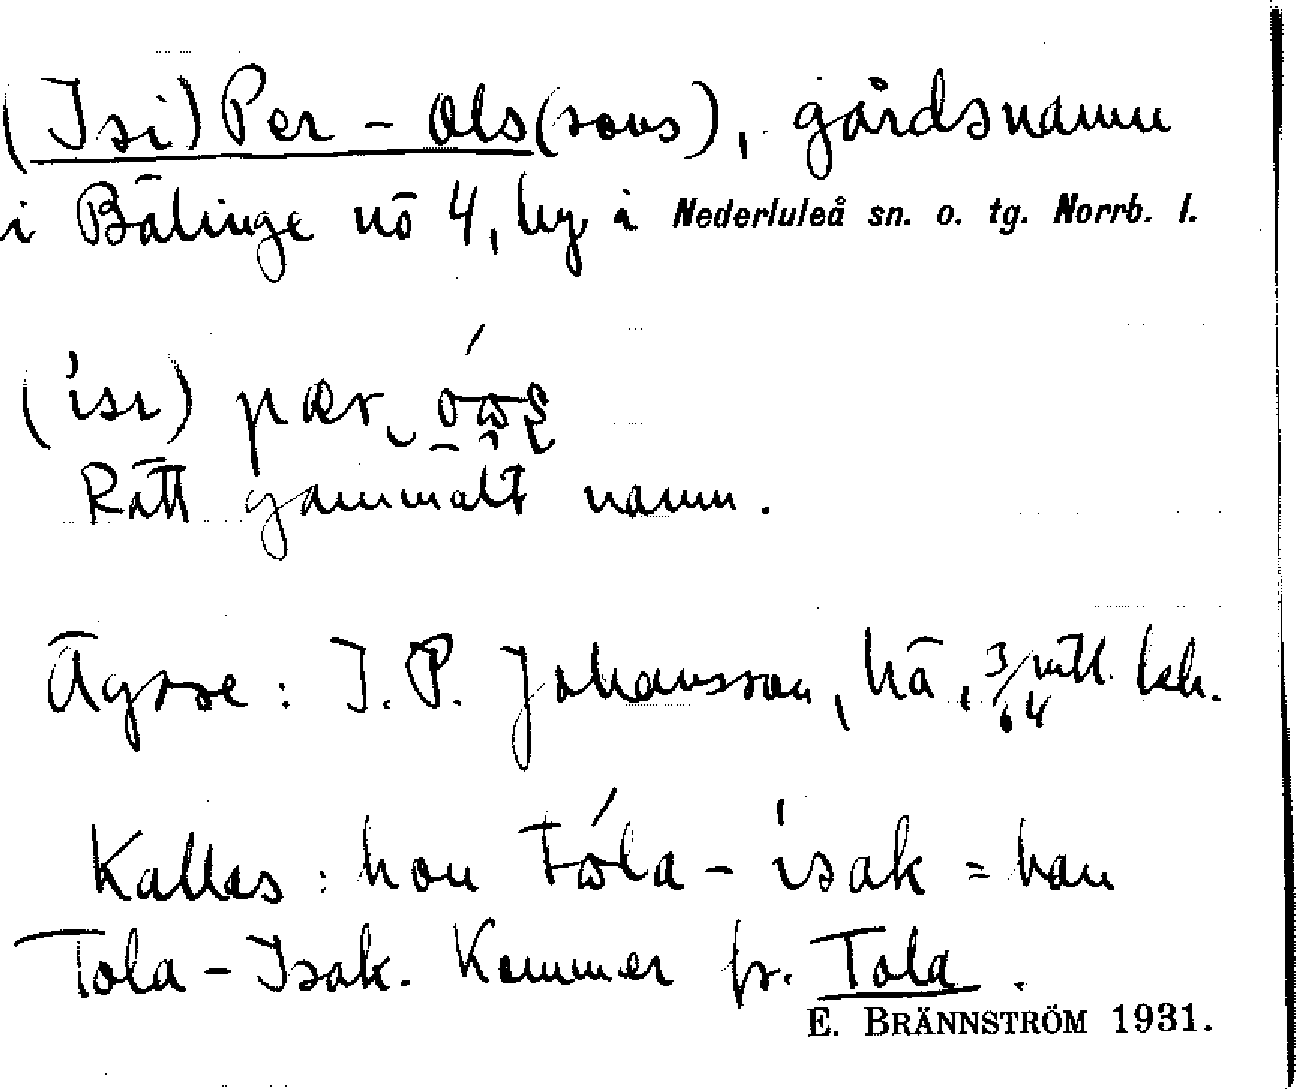 (Isi) Per - Ols(sons), gårdsnamn
i Bälinge nö 4, by i Nederluleå sn. o. tg. Norrb. l.
(ísı) pær
Rätt gammalt namn.
Ägare: I. P. Johansson, hä, 3/64 mtl. ksk.
Kallas: hon Tóla - ísak = han
Tola - Isak. Kommer fr. Tola.
E. BRÄNNSTRÖM 1931.